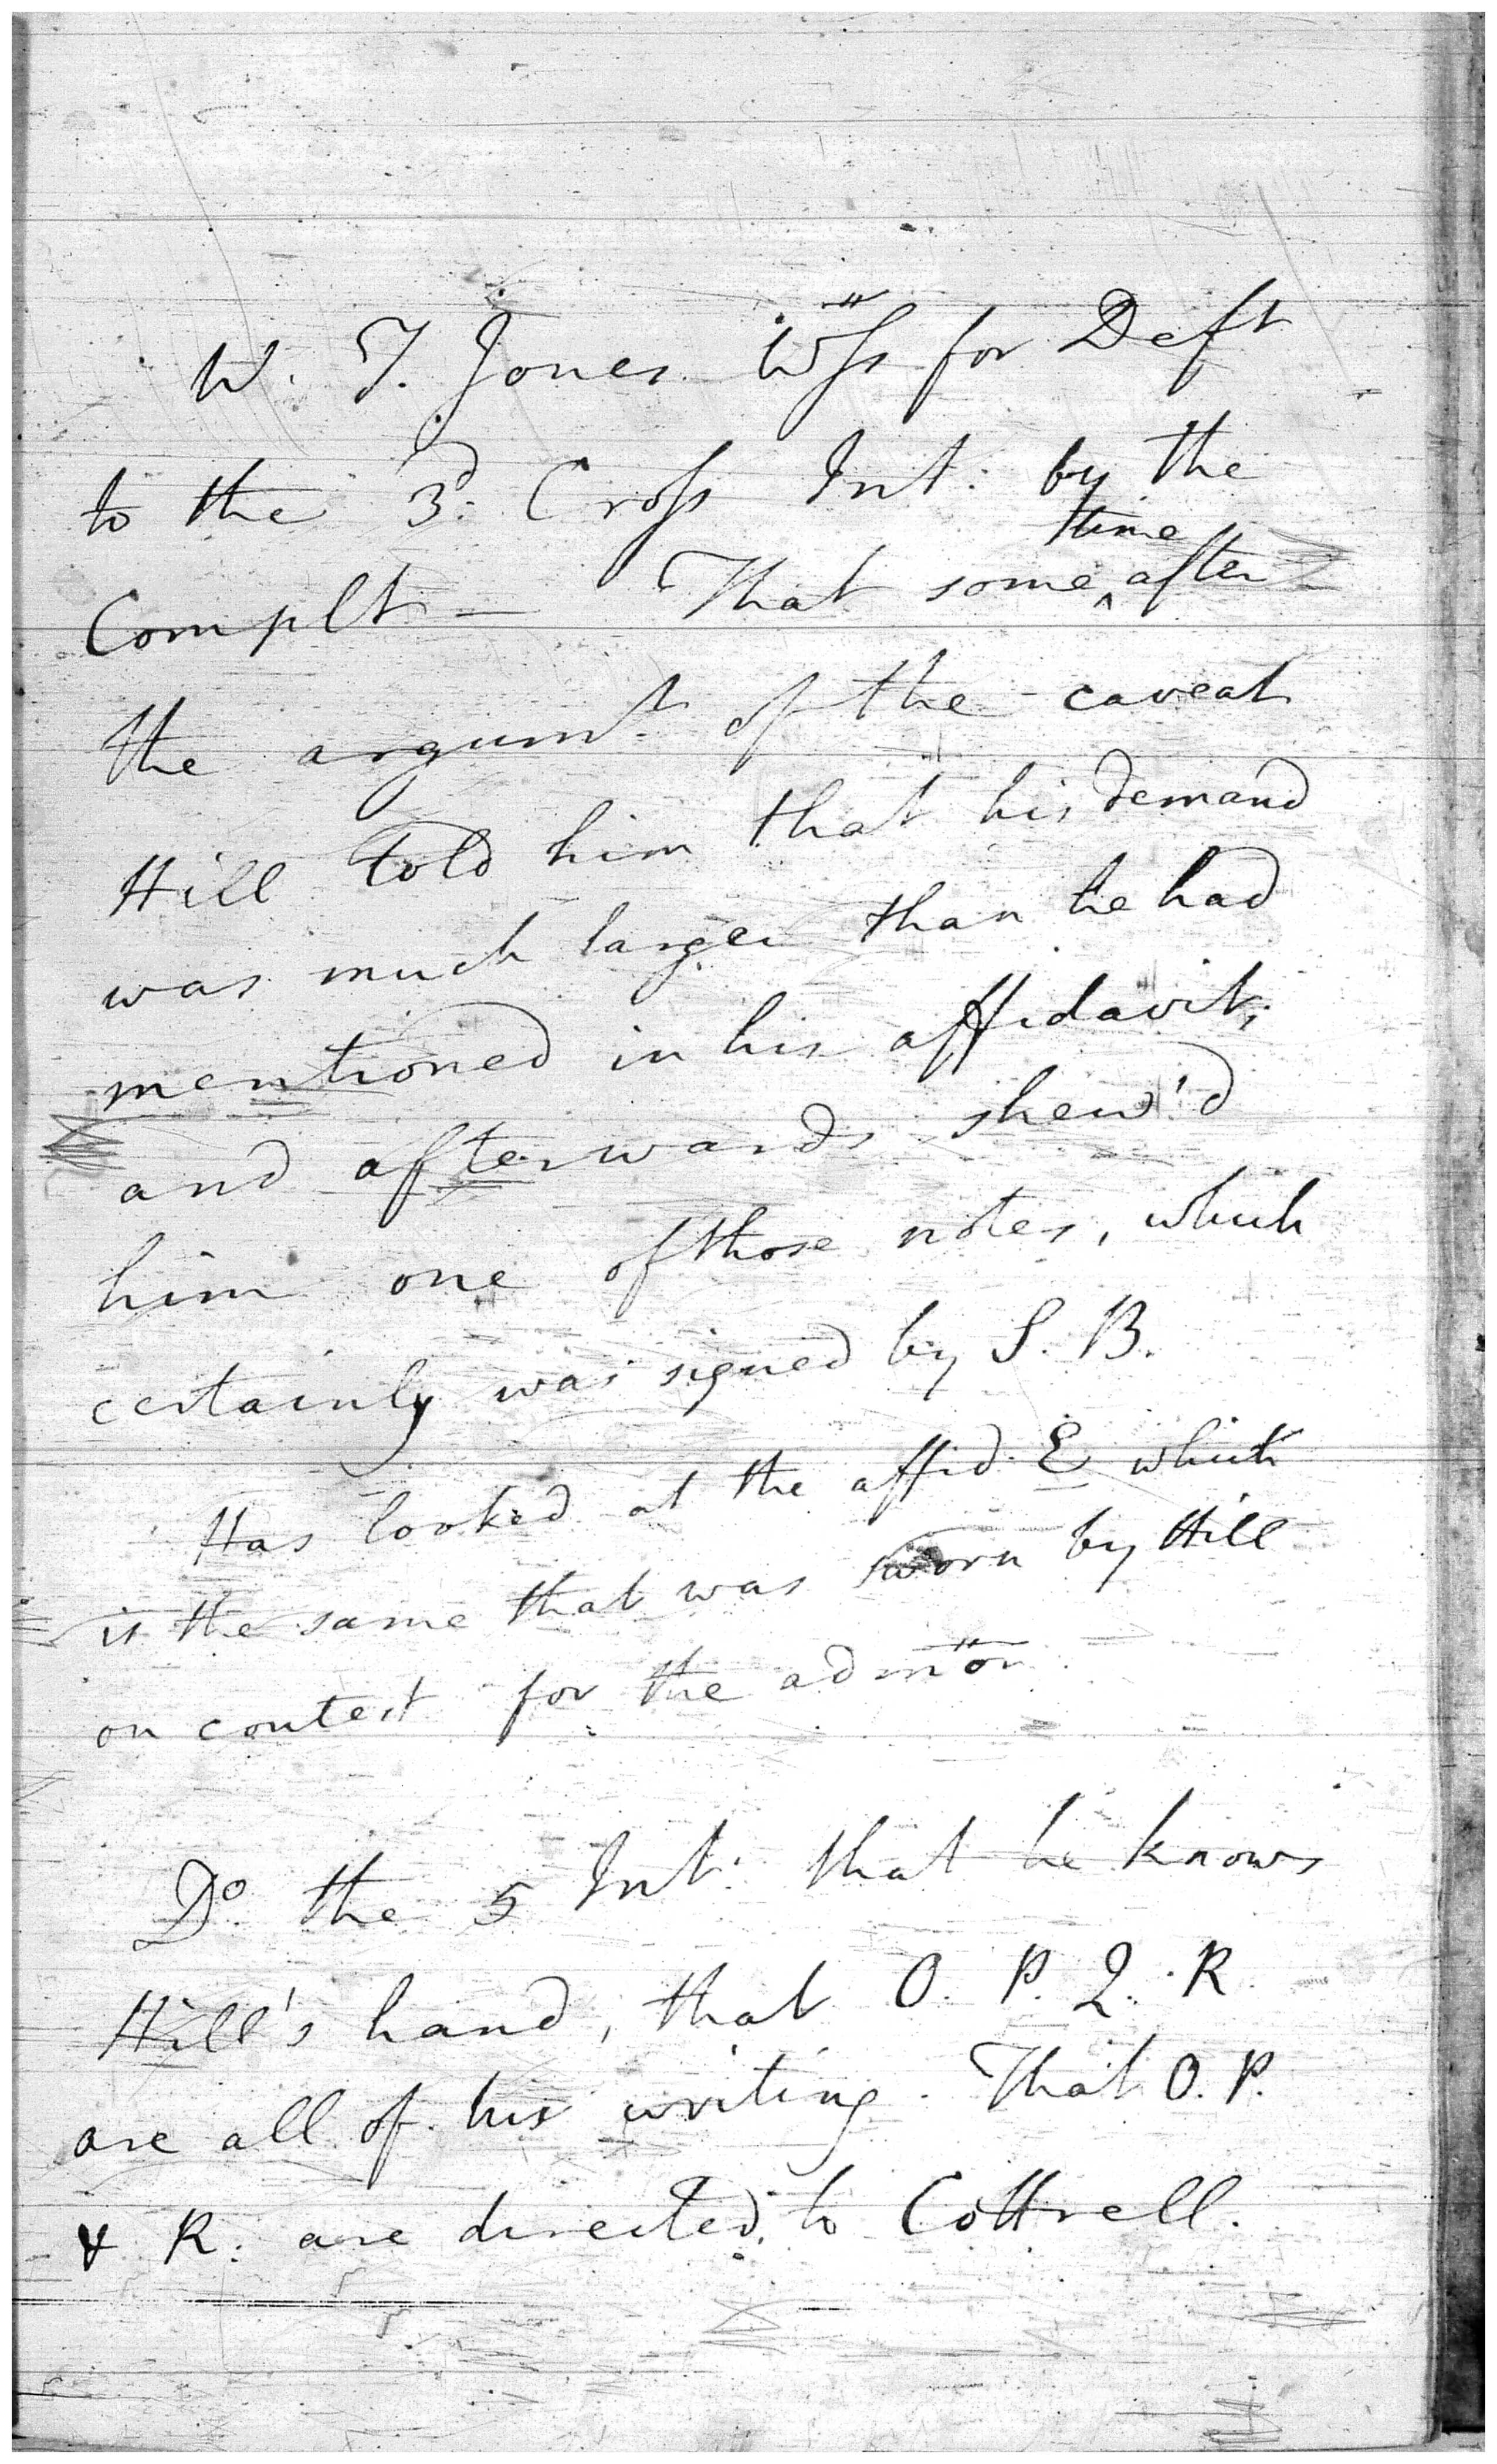 W. T. Jones Wss for Deft
to the 3d Cross Int. by the
Complt — That some ^time after
the argumt of the caveat
Hill told him that his demand
was much larger than he had
mentioned in his affidavit;
and afterwards shew'd
him one of those notes, which
certainly was signed by S. B.
Has looked at the affid E which
is the same that was sworn by Hill
on contest for the admon.
Do the 5 Int. that he knows
Hill's hand, that O. P. Q. R
are all of his writing. That O. P.
& R. are directed to Cottrell.